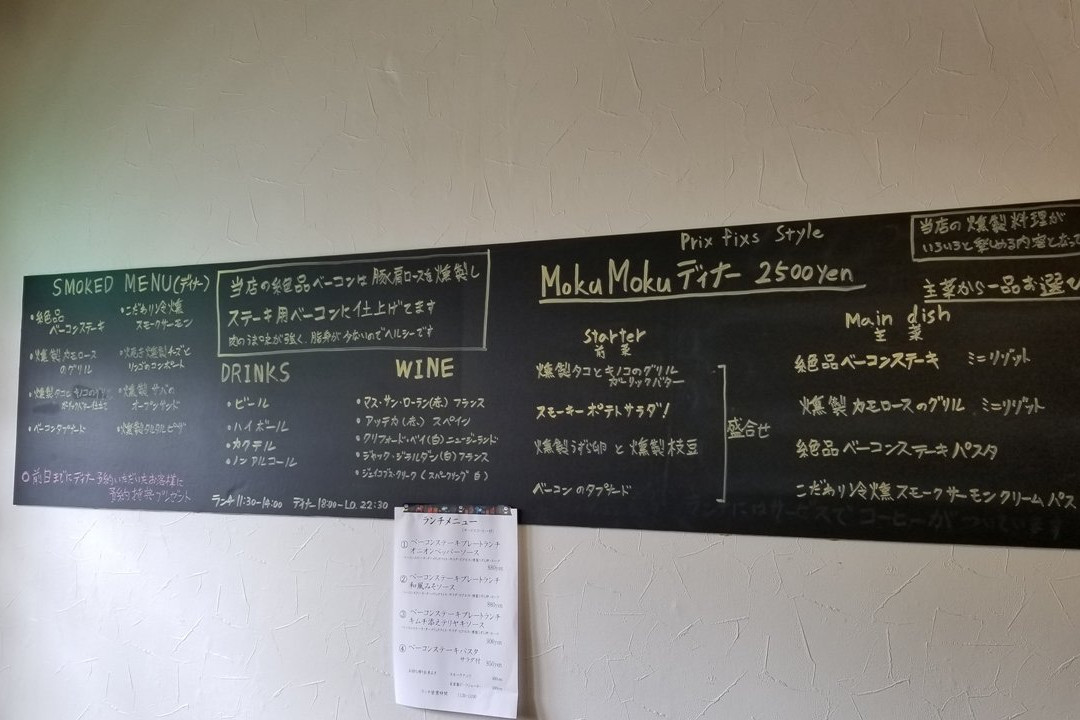 SMOKED MENU(ディナー)
・絶品
ベーコンステーキ
・こだわり冷燻
スモークサーモン
・燻製カモロース
のグリル
・焼き燻製チーズと
リンゴのコンポート
・燻製タコとキノコの
ガーリックバター仕立て
・燻製サバの
オープンサンド
・ベーコンタプナード
・燻製タルタルピザ
○前日までにディナー予約いただいたお客様に
予約特典プレゼント
当店の絶品ベーコンは豚肩ロースを燻製し
ステーキ用ベーコンに仕上げてます
肉のうま味が強く、脂身が少ないのでヘルシーです
DRINKS
・ビール
・ハイボール
・カクテル
・ノンアルコール
WINE
・マス・サン・ローラン(赤)フランス
・アッテカ(赤)スペイン
・クリフォード・ベイ(白)ニュージーランド
・ジャック・ジラルダン(白)フランス
・ジェイコブス・クリーク(スパークリング 白)
ランチ 11:30-14:00 ディナー 18:00-L.O. 22:30
Prix fixs Style
MokuMoku ディナー 2500yen
当店の燻製料理が
いろいろと楽しめる内容となって
主菜から一品お選び
Starter
前菜
燻製タコとキノコのグリル
ガーリックバター
スモーキーポテトサラダ!
燻製うずら卵と燻製枝豆
ベーコンのタプナード
盛合せ
Main dish
主菜
絶品ベーコンステーキ ミニリゾット
燻製カモロースのグリル ミニリゾット
絶品ベーコンステーキパスタ
こだわり冷燻スモークサーモンクリームパス
ランチにはサービスでコーヒーがついています
ランチメニュー
① ベーコンステーキプレートランチ
オニオンペッパーソース
② ベーコンステーキプレートランチ
和風みそソース
③ ベーコンステーキプレートランチ
キムチ添えテリヤキソース
④ ベーコンステーキパスタ
サラダ付